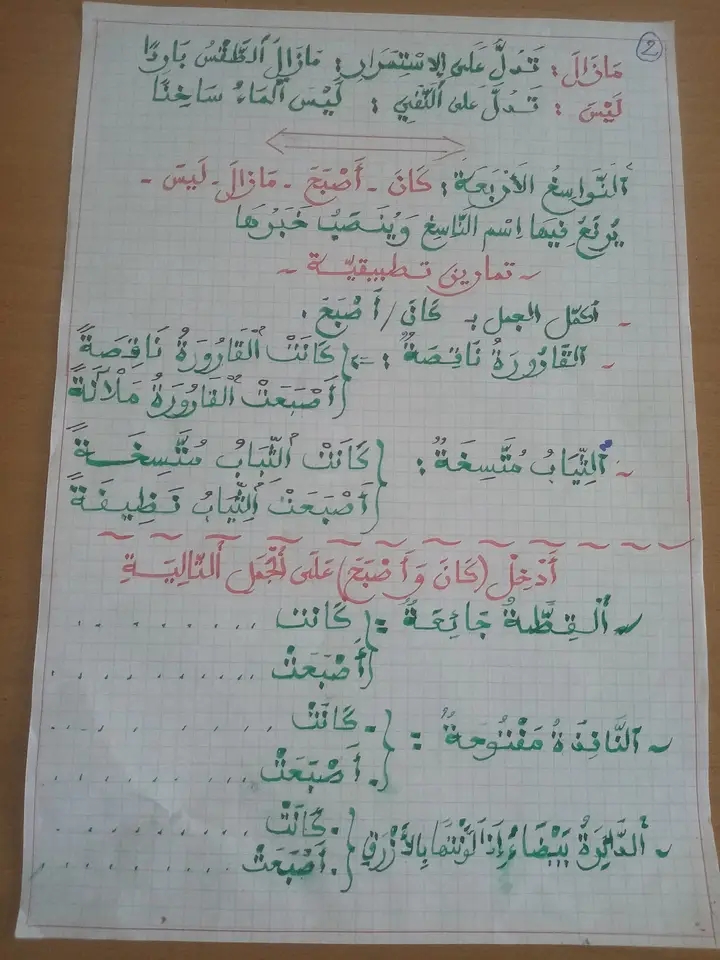 2
مَازَالَ : تَدُلُّ عَلَى الِاسْتِمْرَارِ : مَازَالَ ٱلطَّقْسُ بَارِدًا
لَيْسَ : تَدُلُّ عَلَى ٱلنَّفْيِ : لَيْسَ ٱلْمَاءُ سَاخِنًا
ٱلنَّوَاسِخُ الْأَرْبَعَةُ : كَانَ - أَصْبَحَ - مَازَالَ - لَيْسَ -
يُرْفَعُ فِيهَا اِسْم النَّاسِخِ وَيُنْصَبُ خَبَرُهَا
~ تمارين تطبيقيّة ~
- أكمّل الجمل بـ كَانَ / أَصْبَحَ .
- القَارُورَةُ نَاقِصَةٌ : = { كَانَتْ الْقَارُورَةُ نَاقِصَةً
أَصْبَحَتْ الْقَارُورَةُ مَلْآنَةً
~ ٱلثِّيَابُ مُتَّسِخَةٌ : { كَانَتْ ٱلثِّيَابُ مُتَّسِخَةً
أَصْبَحَتْ ٱلثِّيَابُ نَظِيفَةً
أَدْخِلْ (كَانَ وَأَصْبَحَ) عَلَى ٱلْجُمَلِ ٱلتَّالِيَةِ
ـ ٱلْقِطَّةُ جَائِعَةٌ = { كَانت . . . . . . . . .
أَصْبَحَتْ . . . . . . . . . .
~ ٱلنَّافِذَةُ مَفْتُوحَةٌ : { . كَانَتْ . . . . . . . . .
. أَصْبَحَتْ . . . . . . . . .
~ ٱلدَّائِرَةُ بَيْضَاءُ إِذَا لَوَّنْتَهَا بِالْأَزْرَقِ { . كَانَتْ . . . . . . . . .
. أَصْبَحَتْ . . . . . . . . .